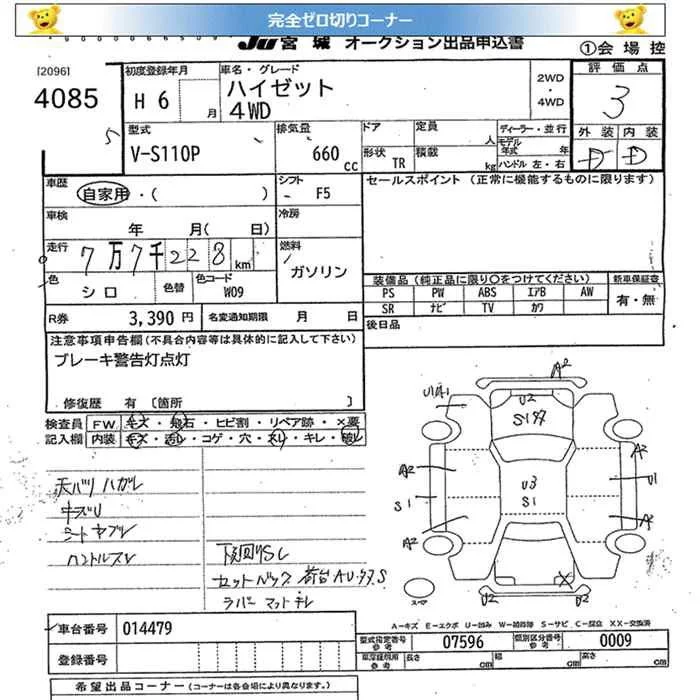 完全ゼロ切りコーナー
JU 宮城 オークション出品申込書
①会場控
[2096]
4085
5
初度登録年月
H 6 月
車名・グレード
ハイゼット
4WD
2WD
・
4WD
評価点
3
型式
V-S110P
排気量
660 cc
ドア
形状 TR
定員 人
積載 kg
ディーラー・並行
モデル年式 年
ハンドル 左・右
外装 内装
D D
車歴
自家用・( )
シフト
F5
セールスポイント (正常に機能するものに限ります)
車検
年 月( 日)
冷房
走行
7万7千228 km
燃料
ガソリン
色
シロ
色替
色コード
W09
装備品(純正品に限り○をつけてください)
PS PW ABS エアB AW
SR ナビ TV カワ
新車保証書
有・無
R券 3,390 円
名変通知期限 月 日
後日品
注意事項申告欄(不具合内容等は具体的に記入して下さい)
ブレーキ警告灯点灯
修復歴 有 [箇所 ]
検査員 FW キズ・飛石・ヒビ割・リペア跡・×要
記入欄 内装 キズ・汚レ・コゲ・穴・スレ・キレ・破レ
天バリ ハガレ
キズU
シート ヤブレ
ハンドルスレ
下回りSC
セットバック 荷台AU・サス
ラバーマットキレ
A2
U2
U3
S1
A2
A2
S1
A2
U1
A2
X
U2
U2
スペア
A-キズ E-エクボ U-凹み W-補修跡 S-サビ C-腐食 XX-交換済
車台番号 014479
登録番号
型式指定番号
参考
07596
類別区分番号
参考
0009
車庫証明用
参考
長さ cm
幅 cm
高さ cm
希望出品コーナー(コーナーは各会場により異なります。)